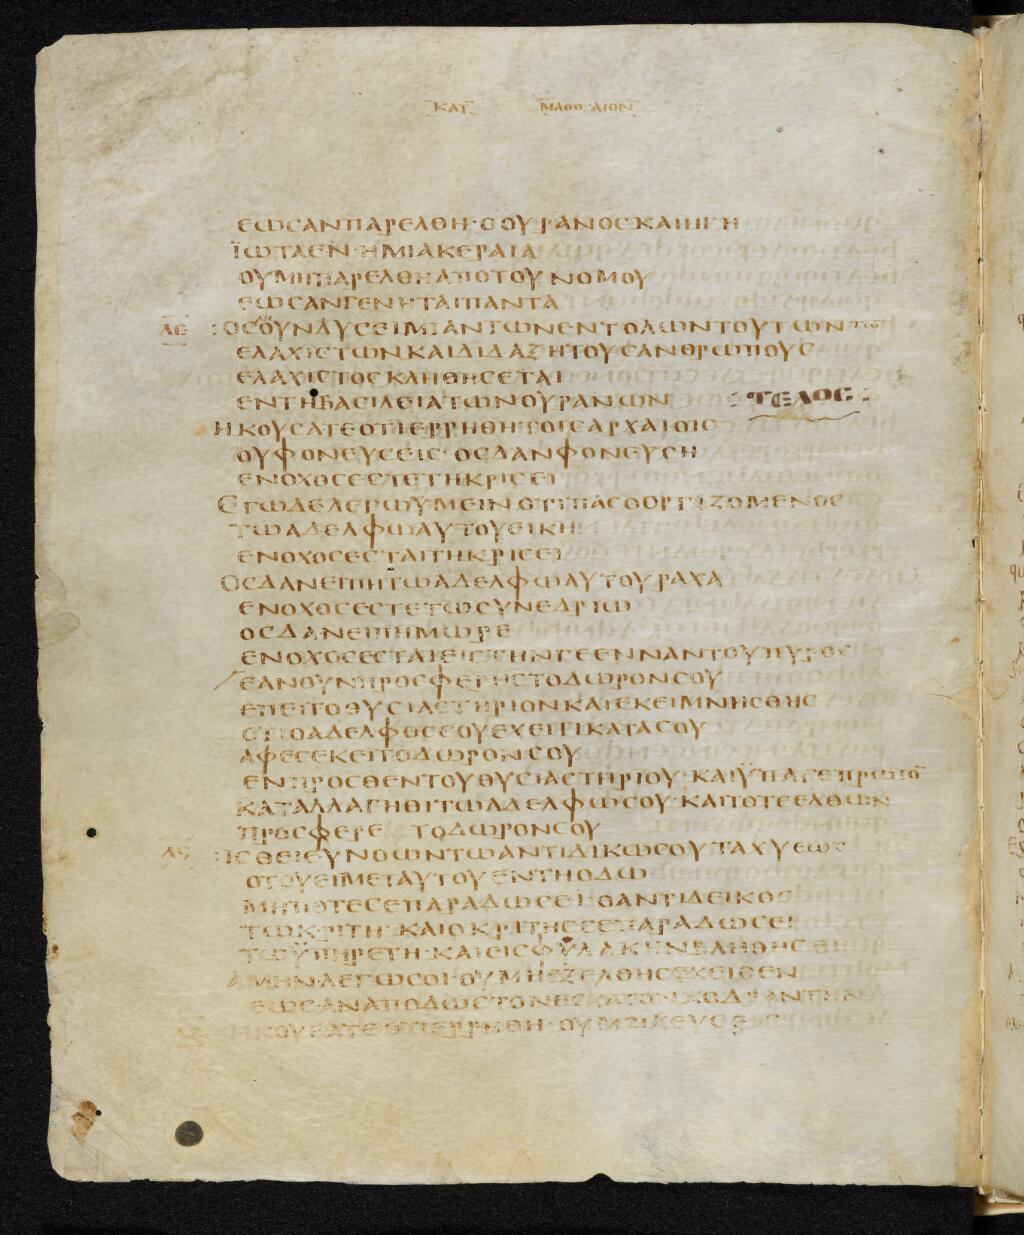 ΚΑΤ ΜΑΘΘΑΙΟΝ
ΕΩϹΑΝΠΑΡΕΛΘΗ·ΟΟΥΡΑΝΟϹΚΑΙΗΓΗ
ΪΩΤΑΕΝ·ΗΜΙΑΚΕΡΑΙΑ
ΟΥΜΗΠΑΡΕΛΘΗΑΠΟΤΟΥΝΟΜΟΥ
ΕΩϹΑΝΓΕΝΗΤΑΙΠΑΝΤΑ
ΛΕ :ΟϹΟΥΝΛΥϹΕΙΜΙΑΝΤΩΝΕΝΤΟΛΩΝΤΟΥΤΩΝΤΩ
ΕΛΑΧΙϹΤΩΝΚΑΙΔΙΔΑΞΗΤΟΥϹΑΝΘΡΩΠΟΥϹ
ΕΛΑΧΙϹΤΟϹΚΛΗΘΗϹΕΤΑΙ
ΕΝΤΗΒΑϹΙΛΕΙΑΤΩΝΟΥΡΑΝΩΝ :ΤΕΛΟϹ:
ΗΚΟΥϹΑΤΕΟΤΙΕΡΡΗΘΗΤΟΙϹΑΡΧΑΙΟΙϹ
ΟΥΦΟΝΕΥϹΕΙϹ·ΟϹΔΑΝΦΟΝΕΥϹΗ
ΕΝΟΧΟϹΕϹΤΕΤΗΚΡΙϹΕΙ
ΕΓΩΔΕΛΕΓΩΥΜΕΙΝΟΤΙΠΑϹΟΟΡΓΙΖΟΜΕΝΟϹ
ΤΩΑΔΕΛΦΩΑΥΤΟΥΕΙΚΗ
ΕΝΟΧΟϹΕϹΤΑΙΤΗΚΡΙϹΕΙ
ΟϹΔΑΝΕΙΠΗΤΩΑΔΕΛΦΩΑΥΤΟΥΡΑΧΑ
ΕΝΟΧΟϹΕϹΤΕΤΩϹΥΝΕΔΡΙΩ
ΟϹΔΑΝΕΙΠΗΜΩΡΕ
ΕΝΟΧΟϹΕϹΤΑΙΕΙϹΤΗΝΓΕΕΝΝΑΝΤΟΥΠΥΡΟϹ
ΕΑΝΟΥΝΠΡΟϹΦΕΡΗϹΤΟΔΩΡΟΝϹΟΥ
ΕΠΕΙΤΟΘΥϹΙΑϹΤΗΡΙΟΝΚΑΙΕΚΕΙΜΝΗϹΘΗϹ
ΟΤΙΟΑΔΕΛΦΟϹϹΟΥΕΧΕΙΤΙΚΑΤΑϹΟΥ
ΑΦΕϹΕΚΕΙΤΟΔΩΡΟΝϹΟΥ
ΕΝΠΡΟϹΘΕΝΤΟΥΘΥϹΙΑϹΤΗΡΙΟΥ·ΚΑΙΫΠΑΓΕΠΡΩΤΟ̅
ΚΑΤΑΛΛΑΓΗΘΙΤΩΑΔΕΛΦΩϹΟΥ·ΚΑΙΤΟΤΕΕΛΘΩΝ
ΠΡΟϹΦΕΡΕ ΤΟΔΩΡΟΝϹΟΥ
ΛϚ :ΙϹΘΕΙΕΥΝΟΩΝΤΩΑΝΤΙΔΙΚΩϹΟΥΤΑΧΥΕΩϹ
ΟΤΟΥΕΙΜΕΤΑΥΤΟΥΕΝΤΗΟΔΩ
ΜΗΠΟΤΕϹΕΠΑΡΑΔΩϹΕΙ·ΟΑΝΤΙΔΕΙΚΟϹ
ΤΩΚΡΙΤΗ·ΚΑΙΟΚΡΙΤΗϹϹΕΠΑΡΑΔΩϹΕΙ
ΤΩΫΠΗΡΕΤΗ·ΚΑΙΕΙϹΦΥΛΑΚΗΝΒΛΗΘΗϹΗ
ΑΜΗΝΛΕΓΩϹΟΙ·ΟΥΜΗΕΞΕΛΘΗϹΕΚΕΙΘΕΝ
ΕΩϹΑΝΑΠΟΔΩϹΤΟΝΕϹΧΑΤΟΝΚΟΔΡΑΝΤΗΝ
ΗΚΟΥϹΑΤΕΟΤΙΕΡΡΗΘΗ·ΟΥΜΟΙΧΕΥϹΕΙϹ